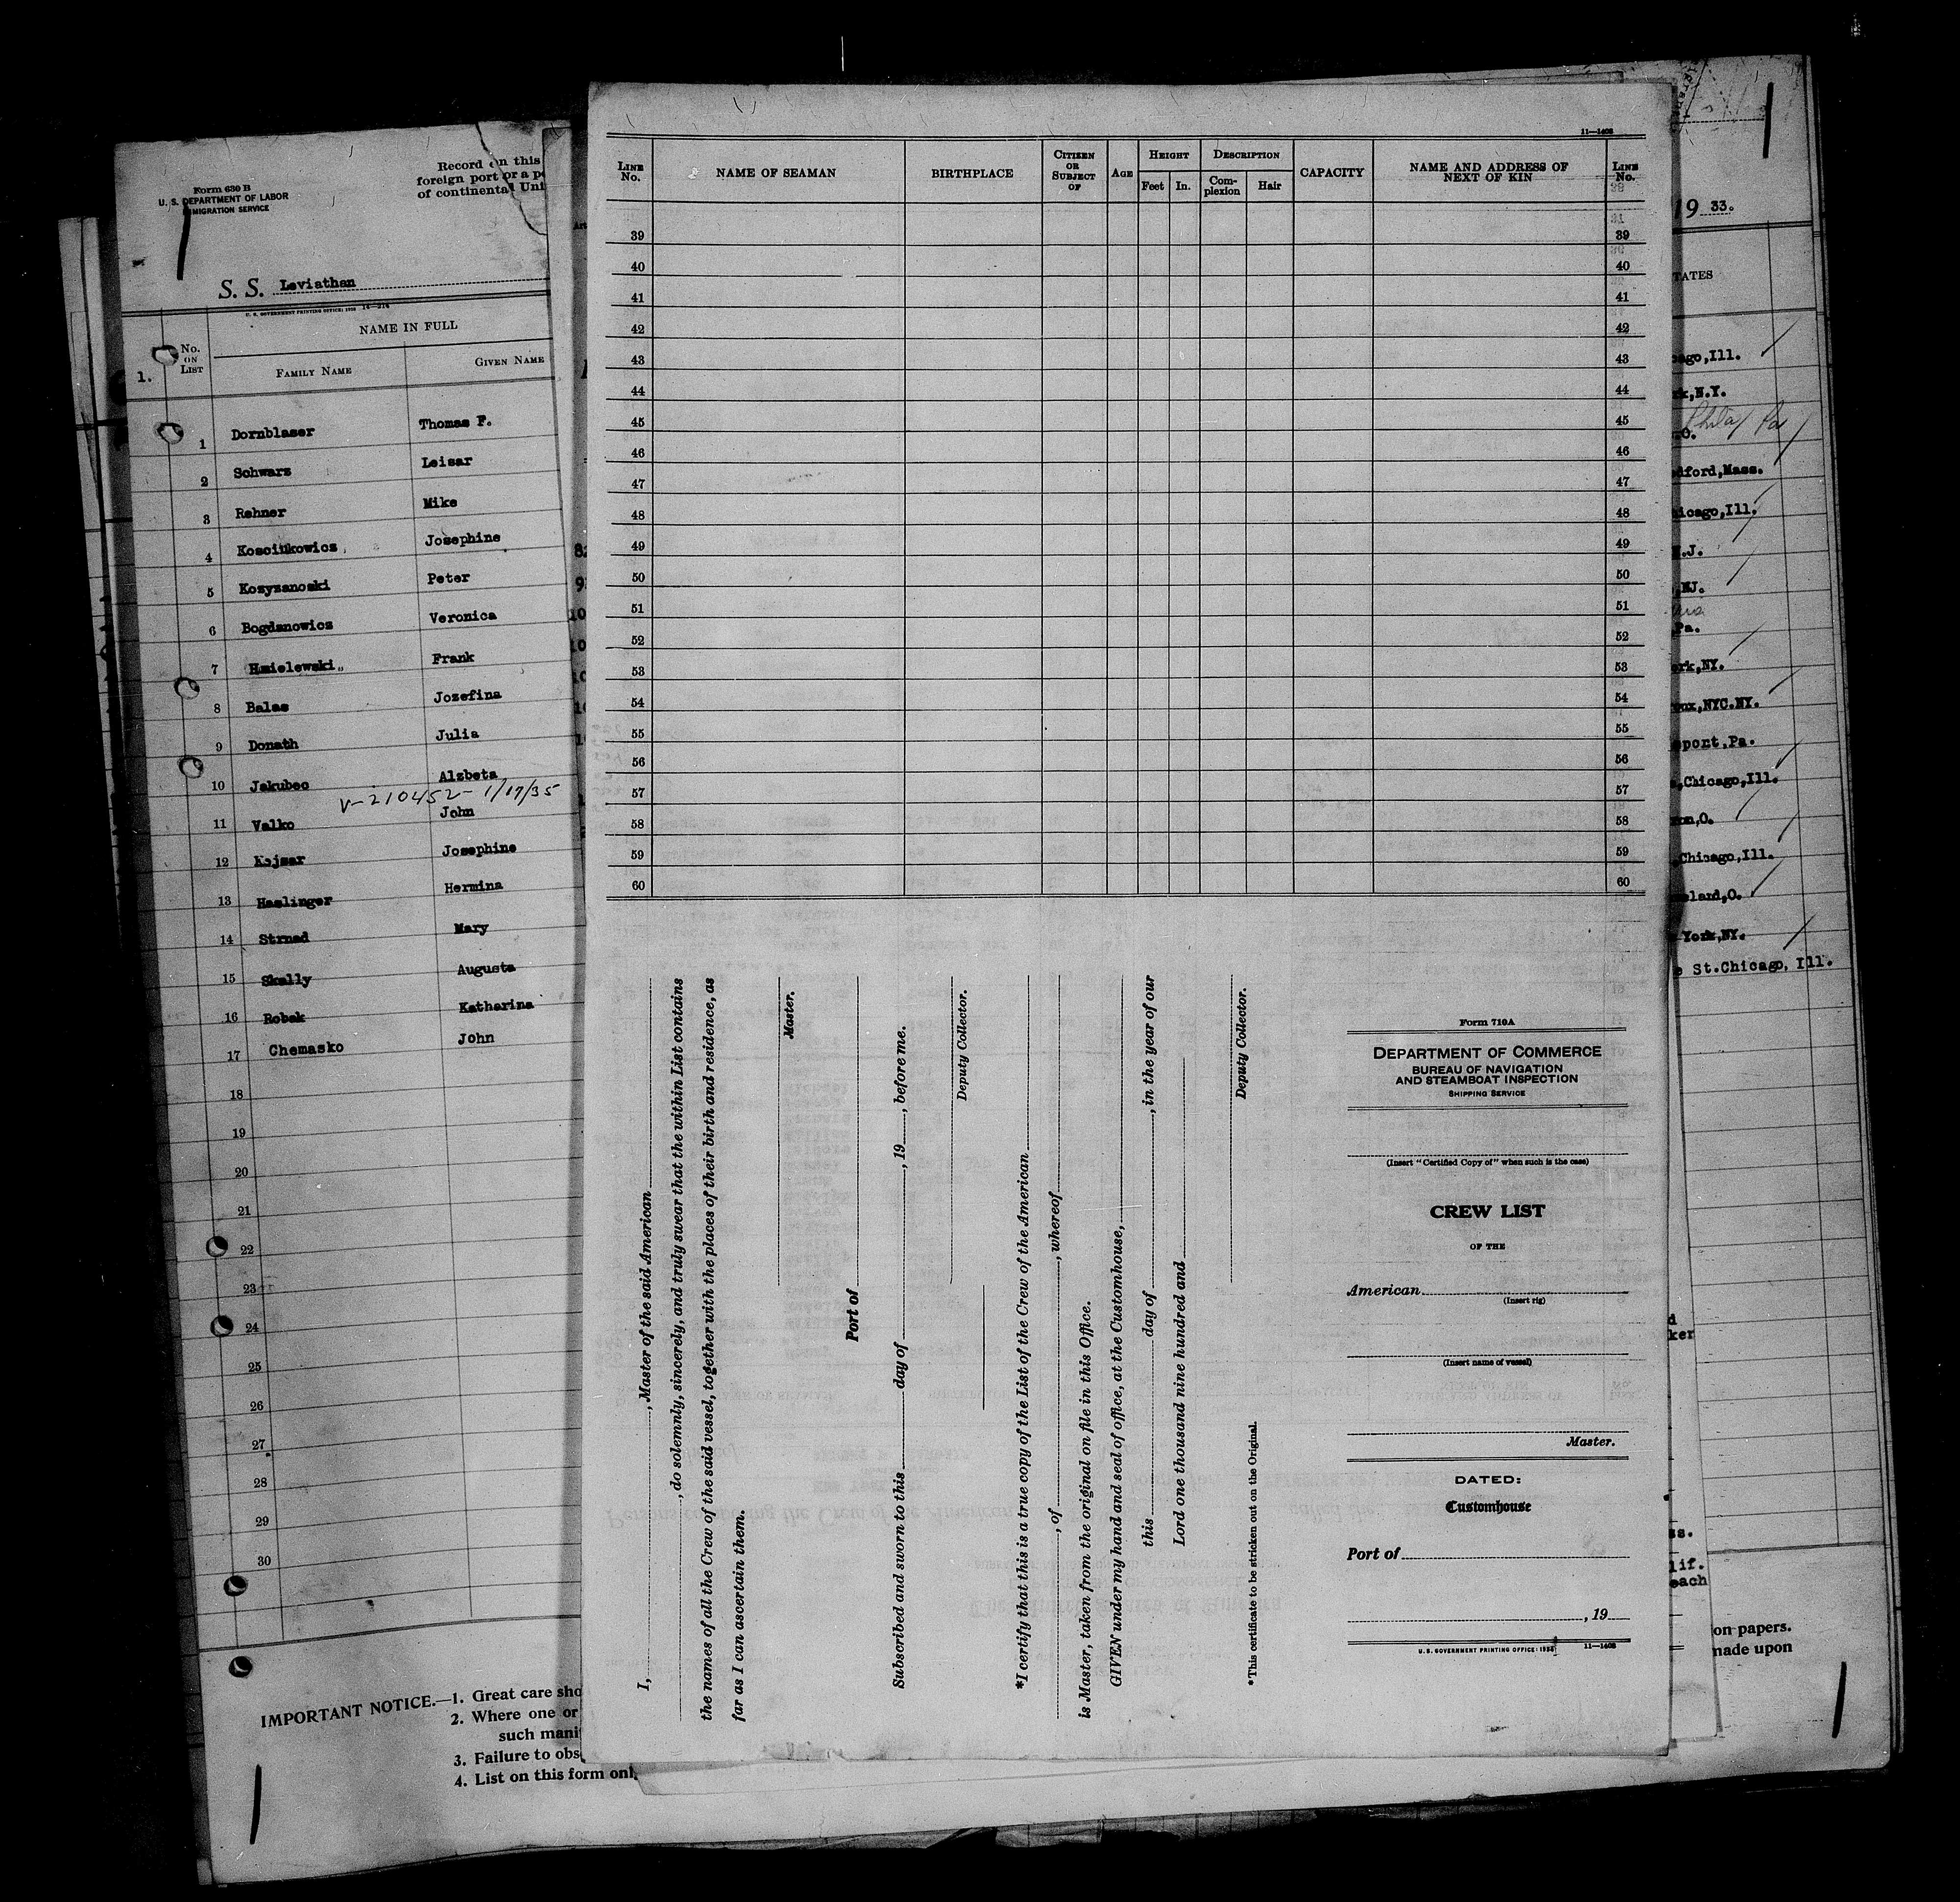 Form 630 B
U. S. DEPARTMENT OF LABOR
IMMIGRATION SERVICE
Record on this
foreign port or a po
of continental Uni
S. S. Leviathan
U. S. GOVERNMENT PRINTING OFFICE: 14—214
No. ON LIST
NAME IN FULL
FAMILY NAME GIVEN NAME
1.
1 Dornblaser Thomas F.
2 Schwarz Leisar
3 Rehner Mike
4 Josephine
5 Peter
6 Bogdanowicz Veronica
7 Hmielewski Frank
8 Balas Jozefina
9 Donath Julia
10 Jakubec Alzbeta
V-210452- 1/17/35
11 Valko John
12 Kajsar Josephine
13 Haslinger Hermina
14 Strnad Mary
15 Skally Augusta
16 Robak Katharina
17 Chemasko John
18
19
20
21
22
23
24
25
26
27
28
29
30
IMPORTANT NOTICE.—1. Great care sho
2. Where one or
such manif
3. Failure to obs
4. List on this form onl
11—1408
LINE No. NAME OF SEAMAN BIRTHPLACE CITIZEN OR SUBJECT OF AGE HEIGHT Feet In. DESCRIPTION Complexion Hair CAPACITY NAME AND ADDRESS OF NEXT OF KIN LINE No.
39 39
40 40
41 41
42 42
43 43
44 44
45 45
46 46
47 47
48 48
49 49
50 50
51 51
52 52
53 53
54 54
55 55
56 56
57 57
58 58
59 59
60 60
I, , Master of the said American
, do solemnly, sincerely, and truly swear that the within List contains
the names of all the Crew of the said vessel, together with the places of their birth and residence, as
far as I can ascertain them.
Master.
Port of
Subscribed and sworn to this day of , 19 , before me.
Deputy Collector.
*I certify that this is a true copy of the List of the Crew of the American
, of , whereof
is Master, taken from the original on file in this Office.
GIVEN under my hand and seal of office, at the Customhouse,
this day of , in the year of our
Lord one thousand nine hundred and
Deputy Collector.
*This certificate to be stricken out on the Original.
Form 710A
DEPARTMENT OF COMMERCE
BUREAU OF NAVIGATION
AND STEAMBOAT INSPECTION
SHIPPING SERVICE
(Insert "Certified Copy of" when such is the case)
CREW LIST
OF THE
American
(Insert rig)
(Insert name of vessel)
Master.
DATED:
Customhouse
Port of
, 19
U. S. GOVERNMENT PRINTING OFFICE: 11—1408
19 33.
TATES
ago,Ill.
k,N.Y.
Phila Pa
.O.
dford,Mass.
icago,Ill.
N.J.
,NJ.
Pa.
rk,NY.
nx,NYC.NY.
pont,Pa.
,Chicago,Ill.
on,O.
Chicago,Ill.
eland,O.
York,NY.
e St.Chicago, Ill.
d
ker
ss.
lif.
each
on papers.
made upon